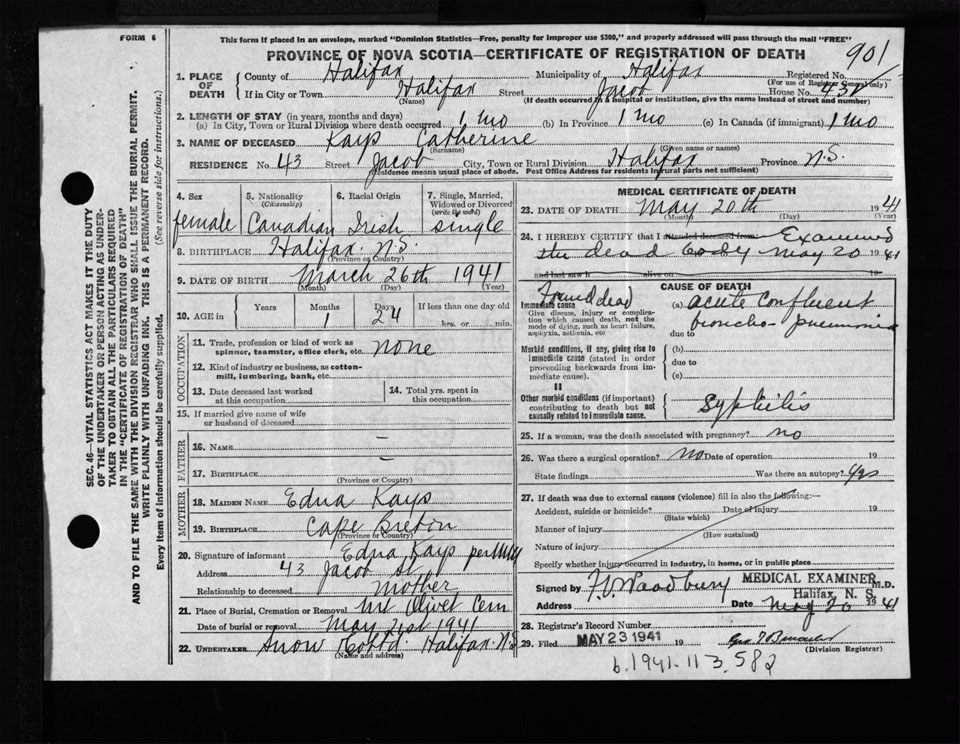 FORM 6
This form if placed in an envelope, marked "Dominion Statistics—Free, penalty for improper use $300," and properly addressed will pass through the mail "FREE"
PROVINCE OF NOVA SCOTIA—CERTIFICATE OF REGISTRATION OF DEATH
901
SEC. 46—VITAL STATISTICS ACT MAKES IT THE DUTY
OF THE UNDERTAKER OR PERSON ACTING AS UNDER-
TAKER TO OBTAIN ALL THE PARTICULARS REQUIRED
IN THE "CERTIFICATE OF REGISTRATION OF DEATH"
AND TO FILE THE SAME WITH THE DIVISION REGISTRAR WHO SHALL ISSUE THE BURIAL PERMIT.
WRITE PLAINLY WITH UNFADING INK. THIS IS A PERMANENT RECORD.
Every item of information should be carefully supplied. (See reverse side for instructions.)
1. PLACE OF DEATH County of Halifax Municipality of Halifax Registered No.
(For use of Registrar General only)
If in City or Town Halifax Street Jacob House No. 43
(Name) (If death occurred in a hospital or institution, give the name instead of street and number)
2. LENGTH OF STAY (in years, months and days)
(a) In City, Town or Rural Division where death occurred 1 mo (b) In Province 1 mo (c) In Canada (if immigrant) 1 mo
3. NAME OF DECEASED Kays Catherine
(Surname) (Given name or names)
RESIDENCE No. 43 Street Jacob City, Town or Rural Division Halifax Province N.S.
Residence means usual place of abode. Post Office Address for residents in rural parts not sufficient)
4. Sex female
5. Nationality (Citizenship) Canadian
6. Racial Origin Irish
7. Single, Married, Widowed or Divorced (write the word) single
8. BIRTHPLACE Halifax N.S.
(Province or Country)
9. DATE OF BIRTH March 26th 1941
(Month) (Day) (Year)
10. AGE in Years Months 1 Days 24 If less than one day old
hrs. or min.
OCCUPATION
11. Trade, profession or kind of work as
spinner, teamster, office clerk, etc. none
12. Kind of industry or business, as cotton-
mill, lumbering, bank, etc.
13. Date deceased last worked
at this occupation
14. Total yrs. spent in
this occupation
15. If married give name of wife
or husband of deceased
FATHER
16. NAME –
17. BIRTHPLACE –
(Province or Country)
MOTHER
18. MAIDEN NAME Edna Kays
19. BIRTHPLACE Cape Breton
(Province or Country)
20. Signature of informant Edna Kays per
Address 43 Jacob St
Relationship to deceased Mother
21. Place of Burial, Cremation or Removal Mt Olivet Cem
Date of burial or removal May 21st 1941
22. UNDERTAKER Snow Halifax N.S
(Name and address)
MEDICAL CERTIFICATE OF DEATH
23. DATE OF DEATH May 20th 1941
(Month) (Day) (Year)
24. I HEREBY CERTIFY that I attended deceased from Examined
the dead body May 20 1941
and last saw h alive on 19
CAUSE OF DEATH
Found dead
Immediate cause
Give disease, injury or complica-
tion which caused death, not the
mode of dying, such as heart failure,
asphyxia, asthenia, etc
(a) acute confluent
broncho-pneumonia
due to
Morbid conditions, if any, giving rise to
immediate cause (stated in order
proceeding backwards from im-
mediate cause).
(b)
due to
(c)
II
Other morbid conditions (if important)
contributing to death but not
causally related to immediate cause.
Syphilis
25. If a woman, was the death associated with pregnancy? no
26. Was there a surgical operation? No Date of operation 19
State findings Was there an autopsy? yes
27. If death was due to external causes (violence) fill in also the following:—
Accident, suicide or homicide? Date of injury 19
(State which)
Manner of injury
(How sustained)
Nature of injury
Specify whether injury occurred in industry, in home, or in public place
Signed by F.V. Woodbury M.D.
MEDICAL EXAMINER
Halifax, N. S.
Address Date May 20 1941
28. Registrar's Record Number
29. Filed MAY 23 1941 19
(Division Registrar)
b.1941.113.582